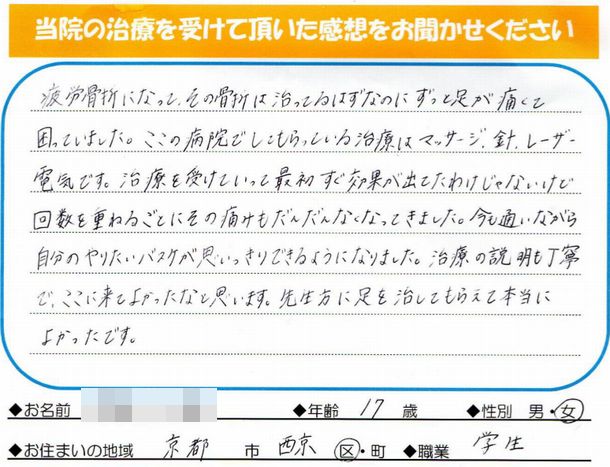 当院の治療を受けて頂いた感想をお聞かせください
疲労骨折になって、その骨折は治ってるはずなのに ずっと足が痛くて
困っていました。ここの病院でしてもらっている治療はマッサージ、針、レーザー
電気です。治療を受けていって最初すぐ効果が出てたわけじゃないけど
回数を重ねるごとにその痛みもだんだんなくなってきました。今も通いながら
自分のやりたいバスケが思いっきりできるようになりました。治療の説明も丁寧
で、ここに来てよかったなと思います。先生方に足を治してもらえて本当に
よかったです。
◆お名前 ◆年齢 17 歳 ◆性別 男・女
◆お住まいの地域 京都 市 西京 区・町 ◆職業 学生